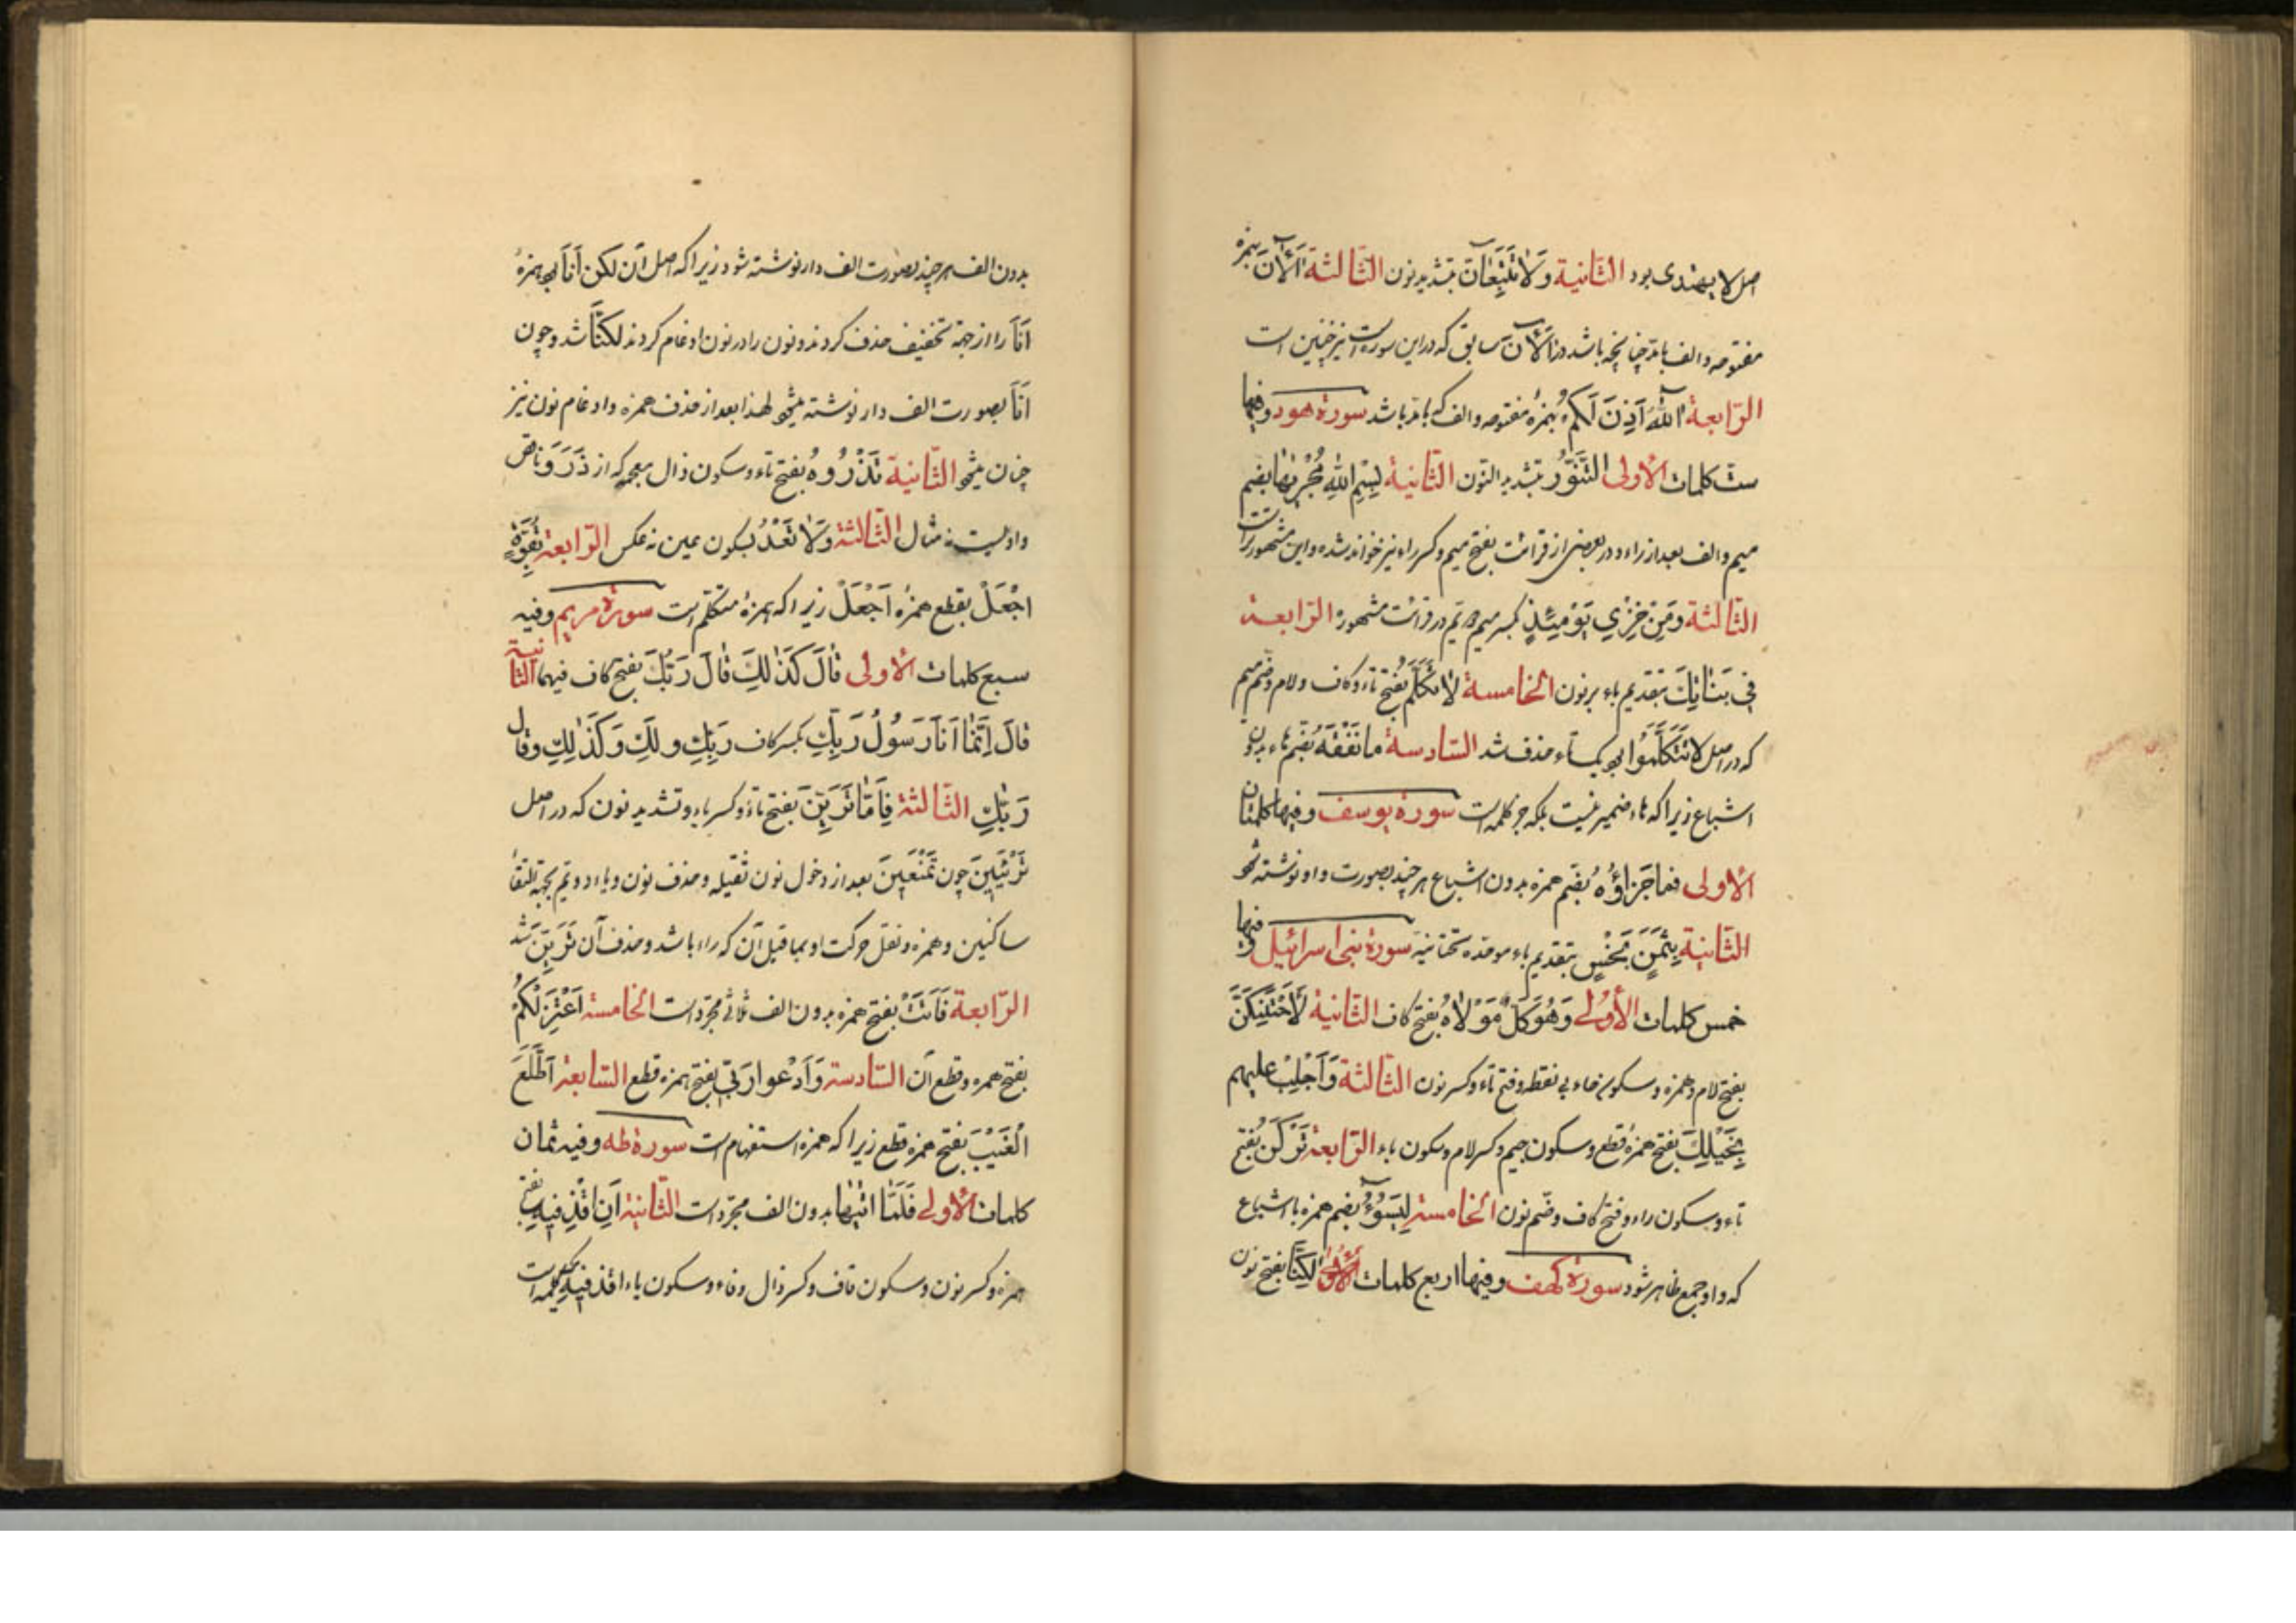 اصل لا یهتدی بود الثّانیة وَلاٰ تَتَّبِعٰانِّ بتشدید نون الثّالثة آلْآنَ بهمزهٔ
مفتوحه و الف با مدّ چنانچه باشد در آلْآنَ سابق که در این سوره است نیز چنین است
الرّابعة آللّٰهُ اَذِنَ لَکُمْ بهمزهٔ مفتوحه و الف که با مدّ باشد سورة هود و فیها
ستّ کلمات الأولی التَّنُّورُ بتشدید النّون الثّانیة بِسْمِ اللّٰهِ مُجْرٰیٰهٰا بضم
میم و الف بعد از راء و در بعضی از قرائت بفتح میم و کسر راء نیز خوانده شده و این مشهورتر است
الثّالثة وَمِنْ خِزْیِ یَوْمِئِذٍ بکسر میم دویّم در قرائت مشهوره الرّابعة
فِی بَنٰاتِکَ بتقدیم باء بر نون الخامسة لاٰ تَکَلَّمُ بفتح تاء و کاف و لام و ضم میم
که در اصل لا تَتَکَلَّمُوا بود یک تاء حذف شد السّادسة ما نَفْقَهُ بضم هاء بدون
اشباع زیرا که هاء ضمیر نیست بلکه جزء کلمه است سورة یوسف و فیها کلمتان
الأولی فما جَزٰاؤُهُ بضم همزه بدون اشباع هر چند بصورت واو نوشته شود
الثّانیة بِثَمَنٍ بَخْسٍ بتقدیم باء موحّده تحتانیّه سورة بنی اسرائیل و فیها
خمس کلمات الأولی وَهُوَ کَلٌّ مَوْلاٰهُ بفتح کاف الثّانیة لَأَحْتَنِکَنَّ
بفتح لام و همزه و سکون حاء بی نقطه و فتح تاء و کسر نون الثّالثة وَاَجْلِبْ علیهم
بِخَیْلِکَ بفتح همزهٔ قطع و سکون جیم و کسر لام و سکون باء الرّابعة تَرْکَنُ بفتح
تاء و سکون راء و فتح کاف و ضمّ نون الخامسة لِیَسُوؤُا بضم همزه با اشباع
که واو جمع ظاهر شود سورة کهف و فیها اربع کلمات الأولی لٰکِنَّا بفتح نون
بدون الف هر چند بصورت الف دار نوشته شود زیرا که اصل آن لکن اَنَا بود همزهٔ
اَنَا را از جهة تخفیف حذف کردند و نون را در نون ادغام کردند لکنَّا شد و چون
اَنَا بصورت الف دار نوشته میشود لهذا بعد از حذف همزه و ادغام نون نیز
چنان میشود الثّانیة تَذْرُوهُ بفتح تاء و سکون ذال معجمه که از ذَرَوَ ناقص
واویست نه مثال الثّالثة وَلاٰ تَعْدُ بسکون عین نه عکس الرّابعة بِقُوَّةٍ
اَجْعَلْ بقطع همزه اَجْعَلْ زیرا که همزهٔ متکلّم است سورة مریم و فیه
سبع کلمات الأولی قٰالَ کَذٰلِکَ قٰالَ رَبُّکَ بفتح کاف فیهما الثّانیة
قٰالَ اِنَّمٰا اَنَا رَسُولُ رَبِّکِ بکسر کاف رَبِّکِ و لَکِ وَ کَذٰلِکِ و قال
رَبُّکِ الثّالثة فَاِمّٰا تَرَیِنَّ بفتح تاء و کسر یاء و تشدید نون که در اصل
تَرْئَیِینَ چون تَمْنَعِینَ بعد از دخول نون ثقیله و حذف نون و یاء دویّم بجهة التقاء
ساکنین و همزه و نقل حرکت او بما قبل آن که راء باشد و حذف آن تَرَیِنَّ شد
الرّابعة فَاَتَتْ بفتح همزه بدون الف ثلاثی مجرّد است الخامسة اَعْتَزِلُکُمْ
بفتح همزه و قطع آن السّادسة وَاَدْعُوا رَبِّی بفتح همزه قطع السّابعة اَطَّلَعَ
الْغَیْبَ بفتح همزه قطع زیرا که همزه استفهام است سورة طه و فیه ثمان
کلمات الأولی فَلَمّٰا اَتٰیهٰا بدون الف مجرّد است الثّانیة اَنِ اقْذِفِیهِ بفتح
همزه و کسر نون و سکون قاف و کسر ذال و فاء و سکون یاء اقذفیه یک کلمه است